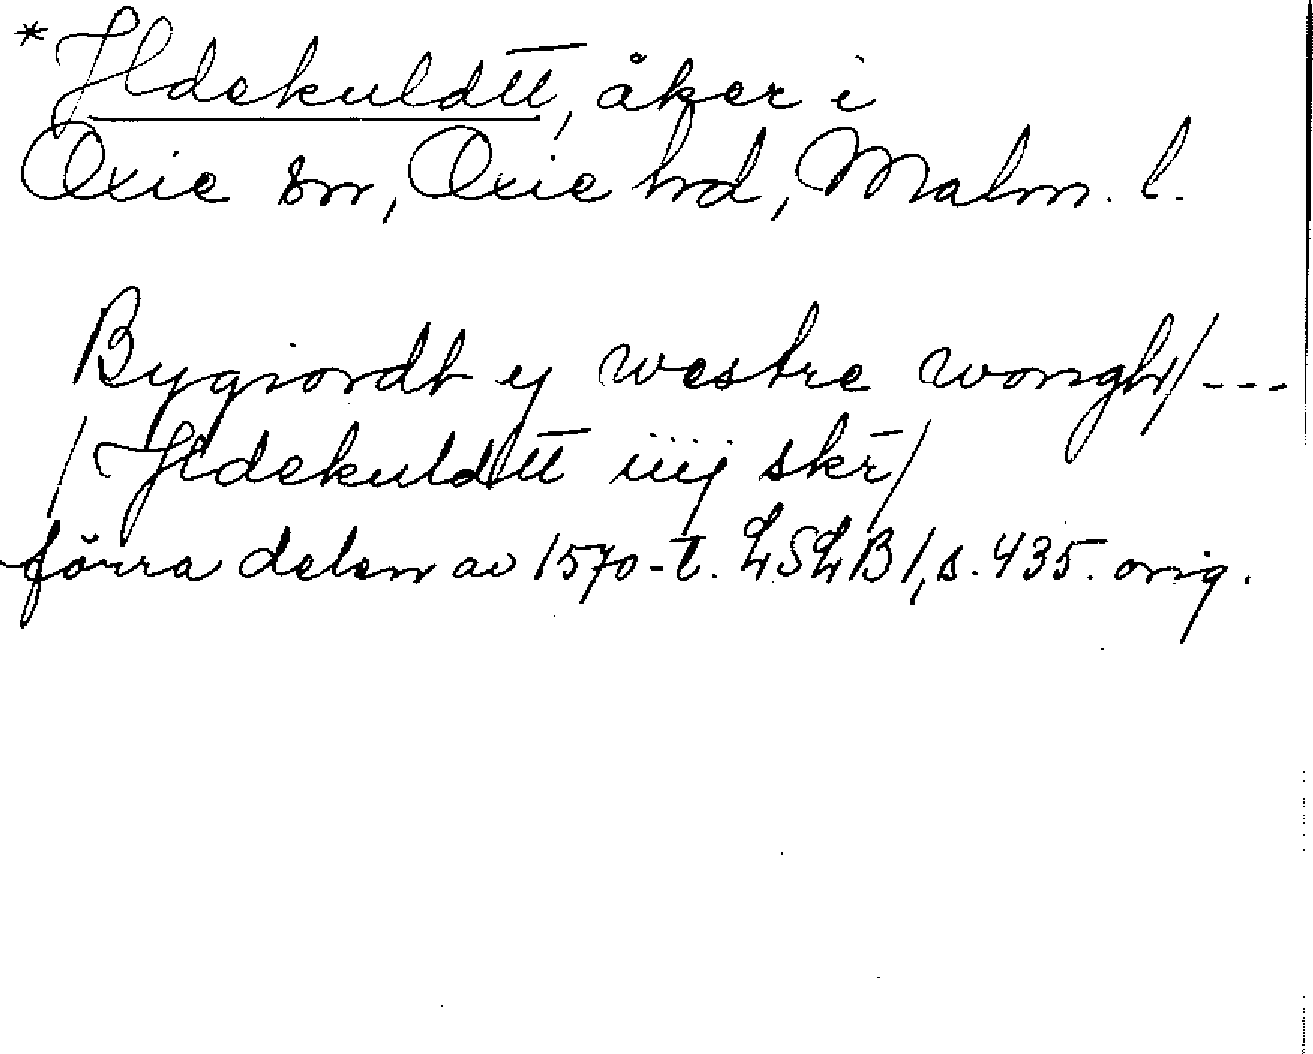 *Ildekuldtt̄, åker i
Oxie sn, Oxie hd, Malm. l.
Bygiordt ij westre wongh/ ---
/ Ildekuldtt̄ iiij skr̄/
förra delen av 1570-t. LSLB1, s. 435. orig.